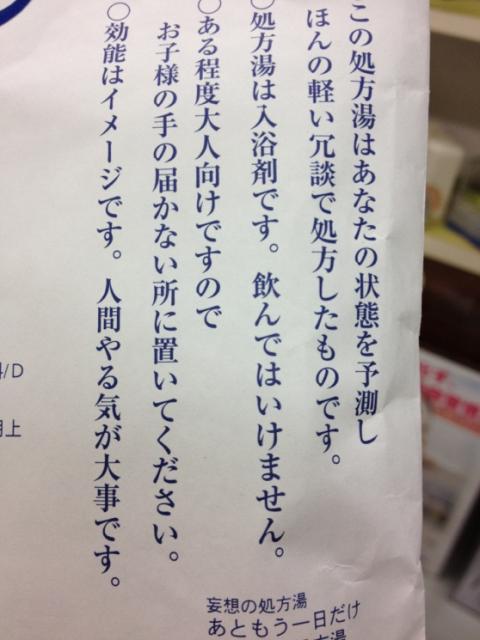 この処方湯はあなたの状態を予測し
ほんの軽い冗談で処方したものです。
○処方湯は入浴剤です。飲んではいけません。
○ある程度大人向けですので
お子様の手の届かない所に置いてください。
○効能はイメージです。人間やる気が大事です。
/D
上
妄想の処方湯
あともう一日だけ